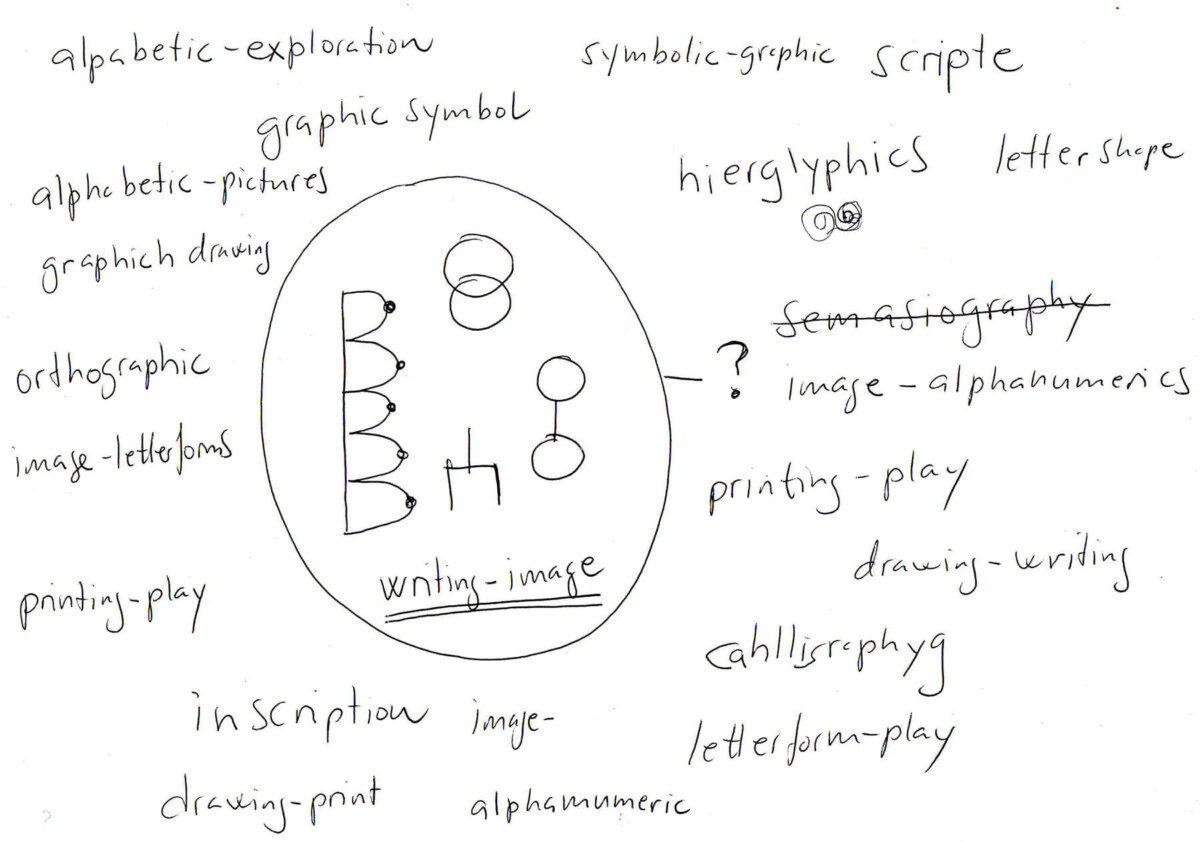 alpabetic-exploration
symbolic-graphic scripte
graphic symbol
hierglyphics
lettershape
alphabetic-pictures
a b
graphich drawing
semasiography
orthographic
?
image-alphanumerics
image-letterforms
printing-play
drawing-writing
writing-image
printing-play
cahlligraphyg
inscription
image-
letterform-play
drawing-print
alphamumeric